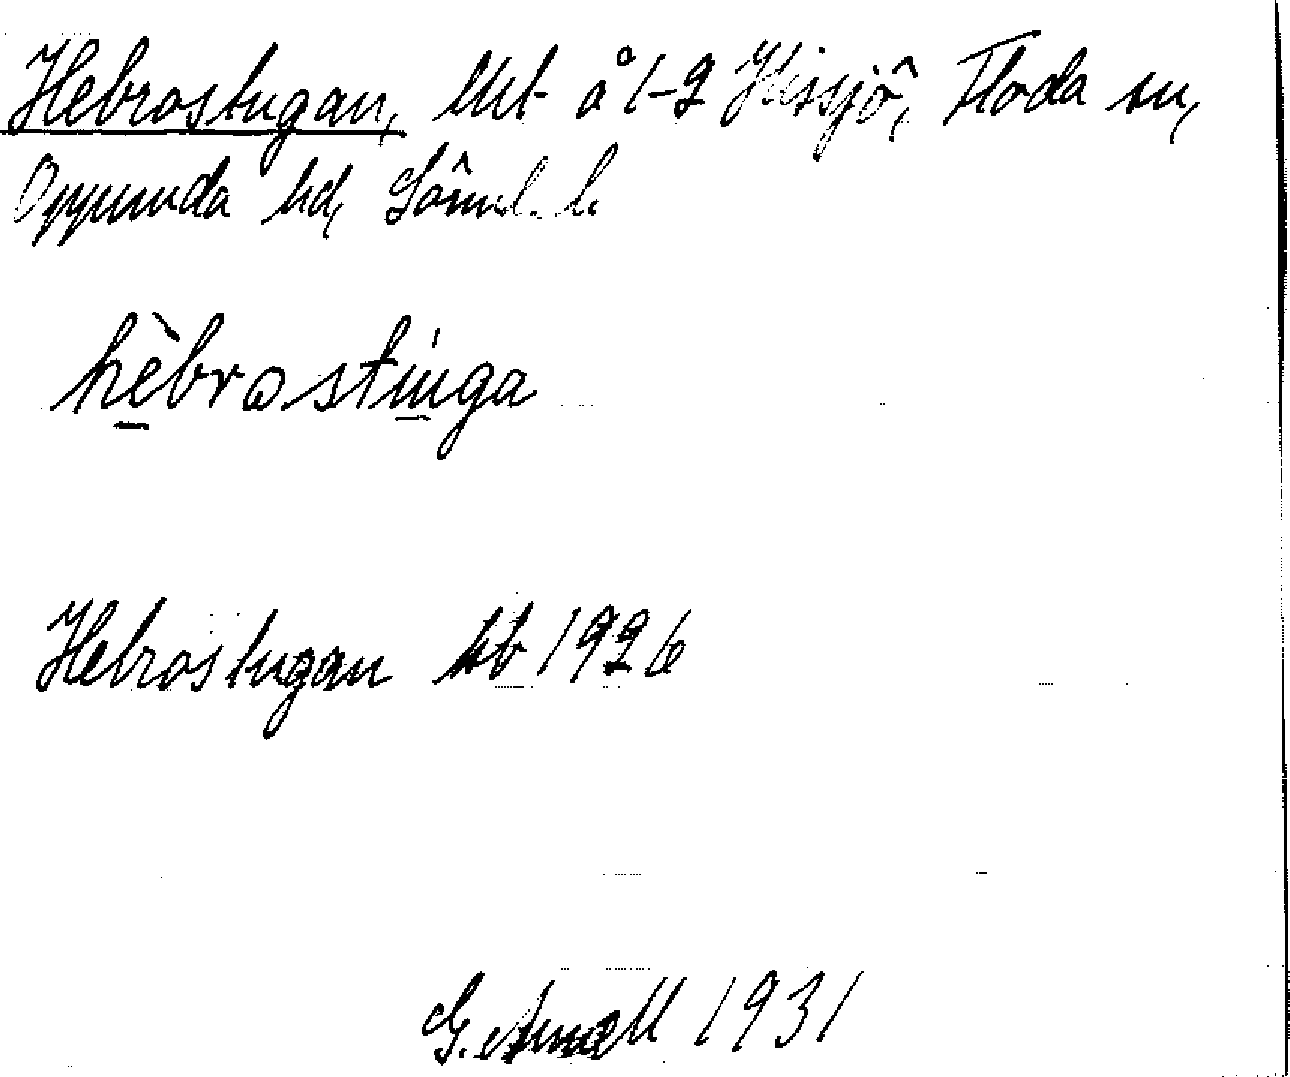 Hebrostugan, lht å 1-2 Hissjö, Floda sn,
Oppunda hd, Södml. l.
hèbrostuga
Hebrostugan kb 1926
G. Arnell 1931